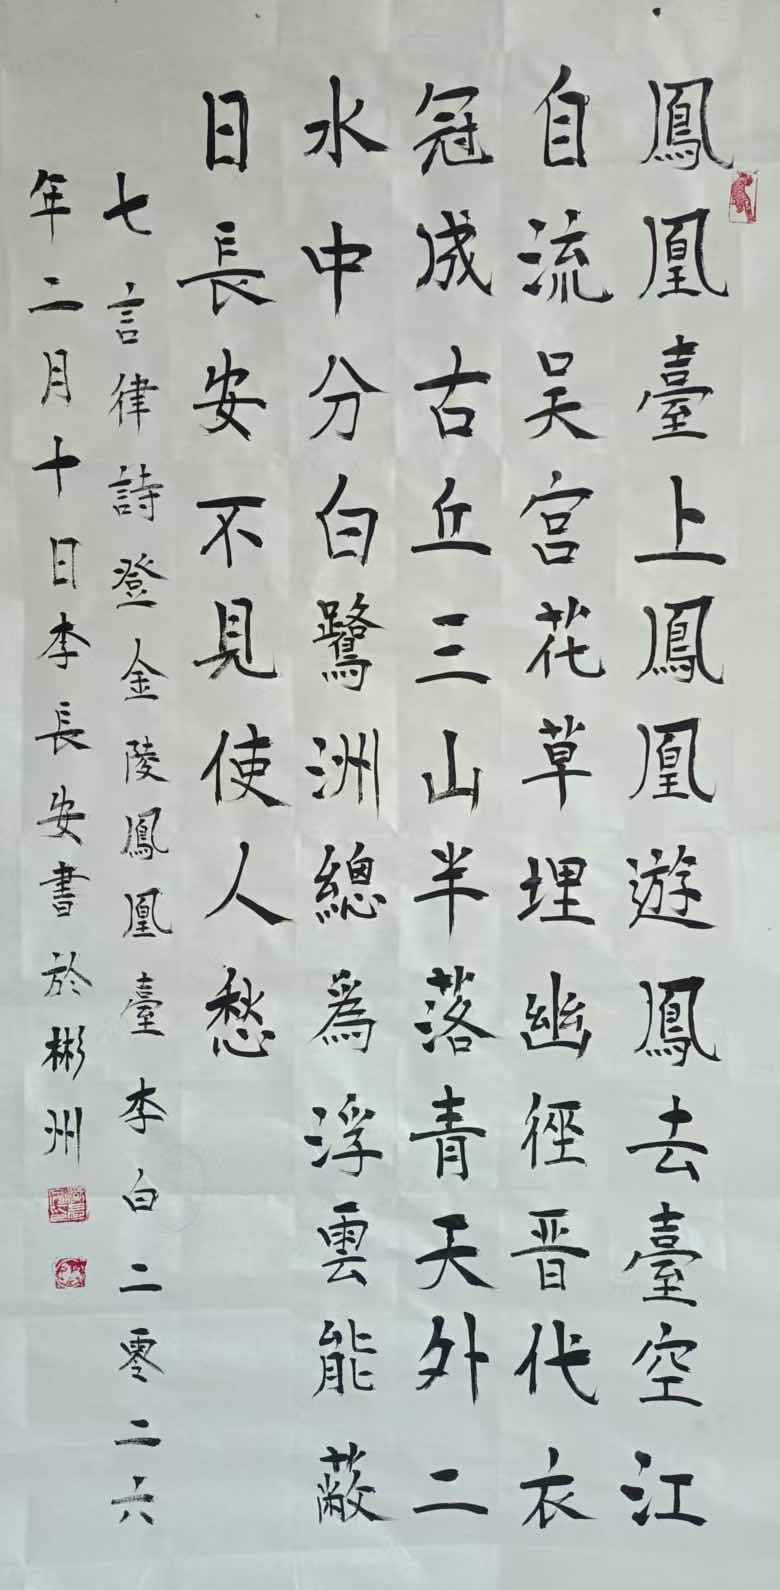 鳳凰臺上鳳凰遊鳳去臺空江
自流吴宫花草埋幽徑晋代衣
冠成古丘三山半落青天外二
水中分白鷺洲總爲浮雲能蔽
日長安不見使人愁
七言律詩登金陵鳳凰臺李白二零二六
年二月十日李長安書於彬州